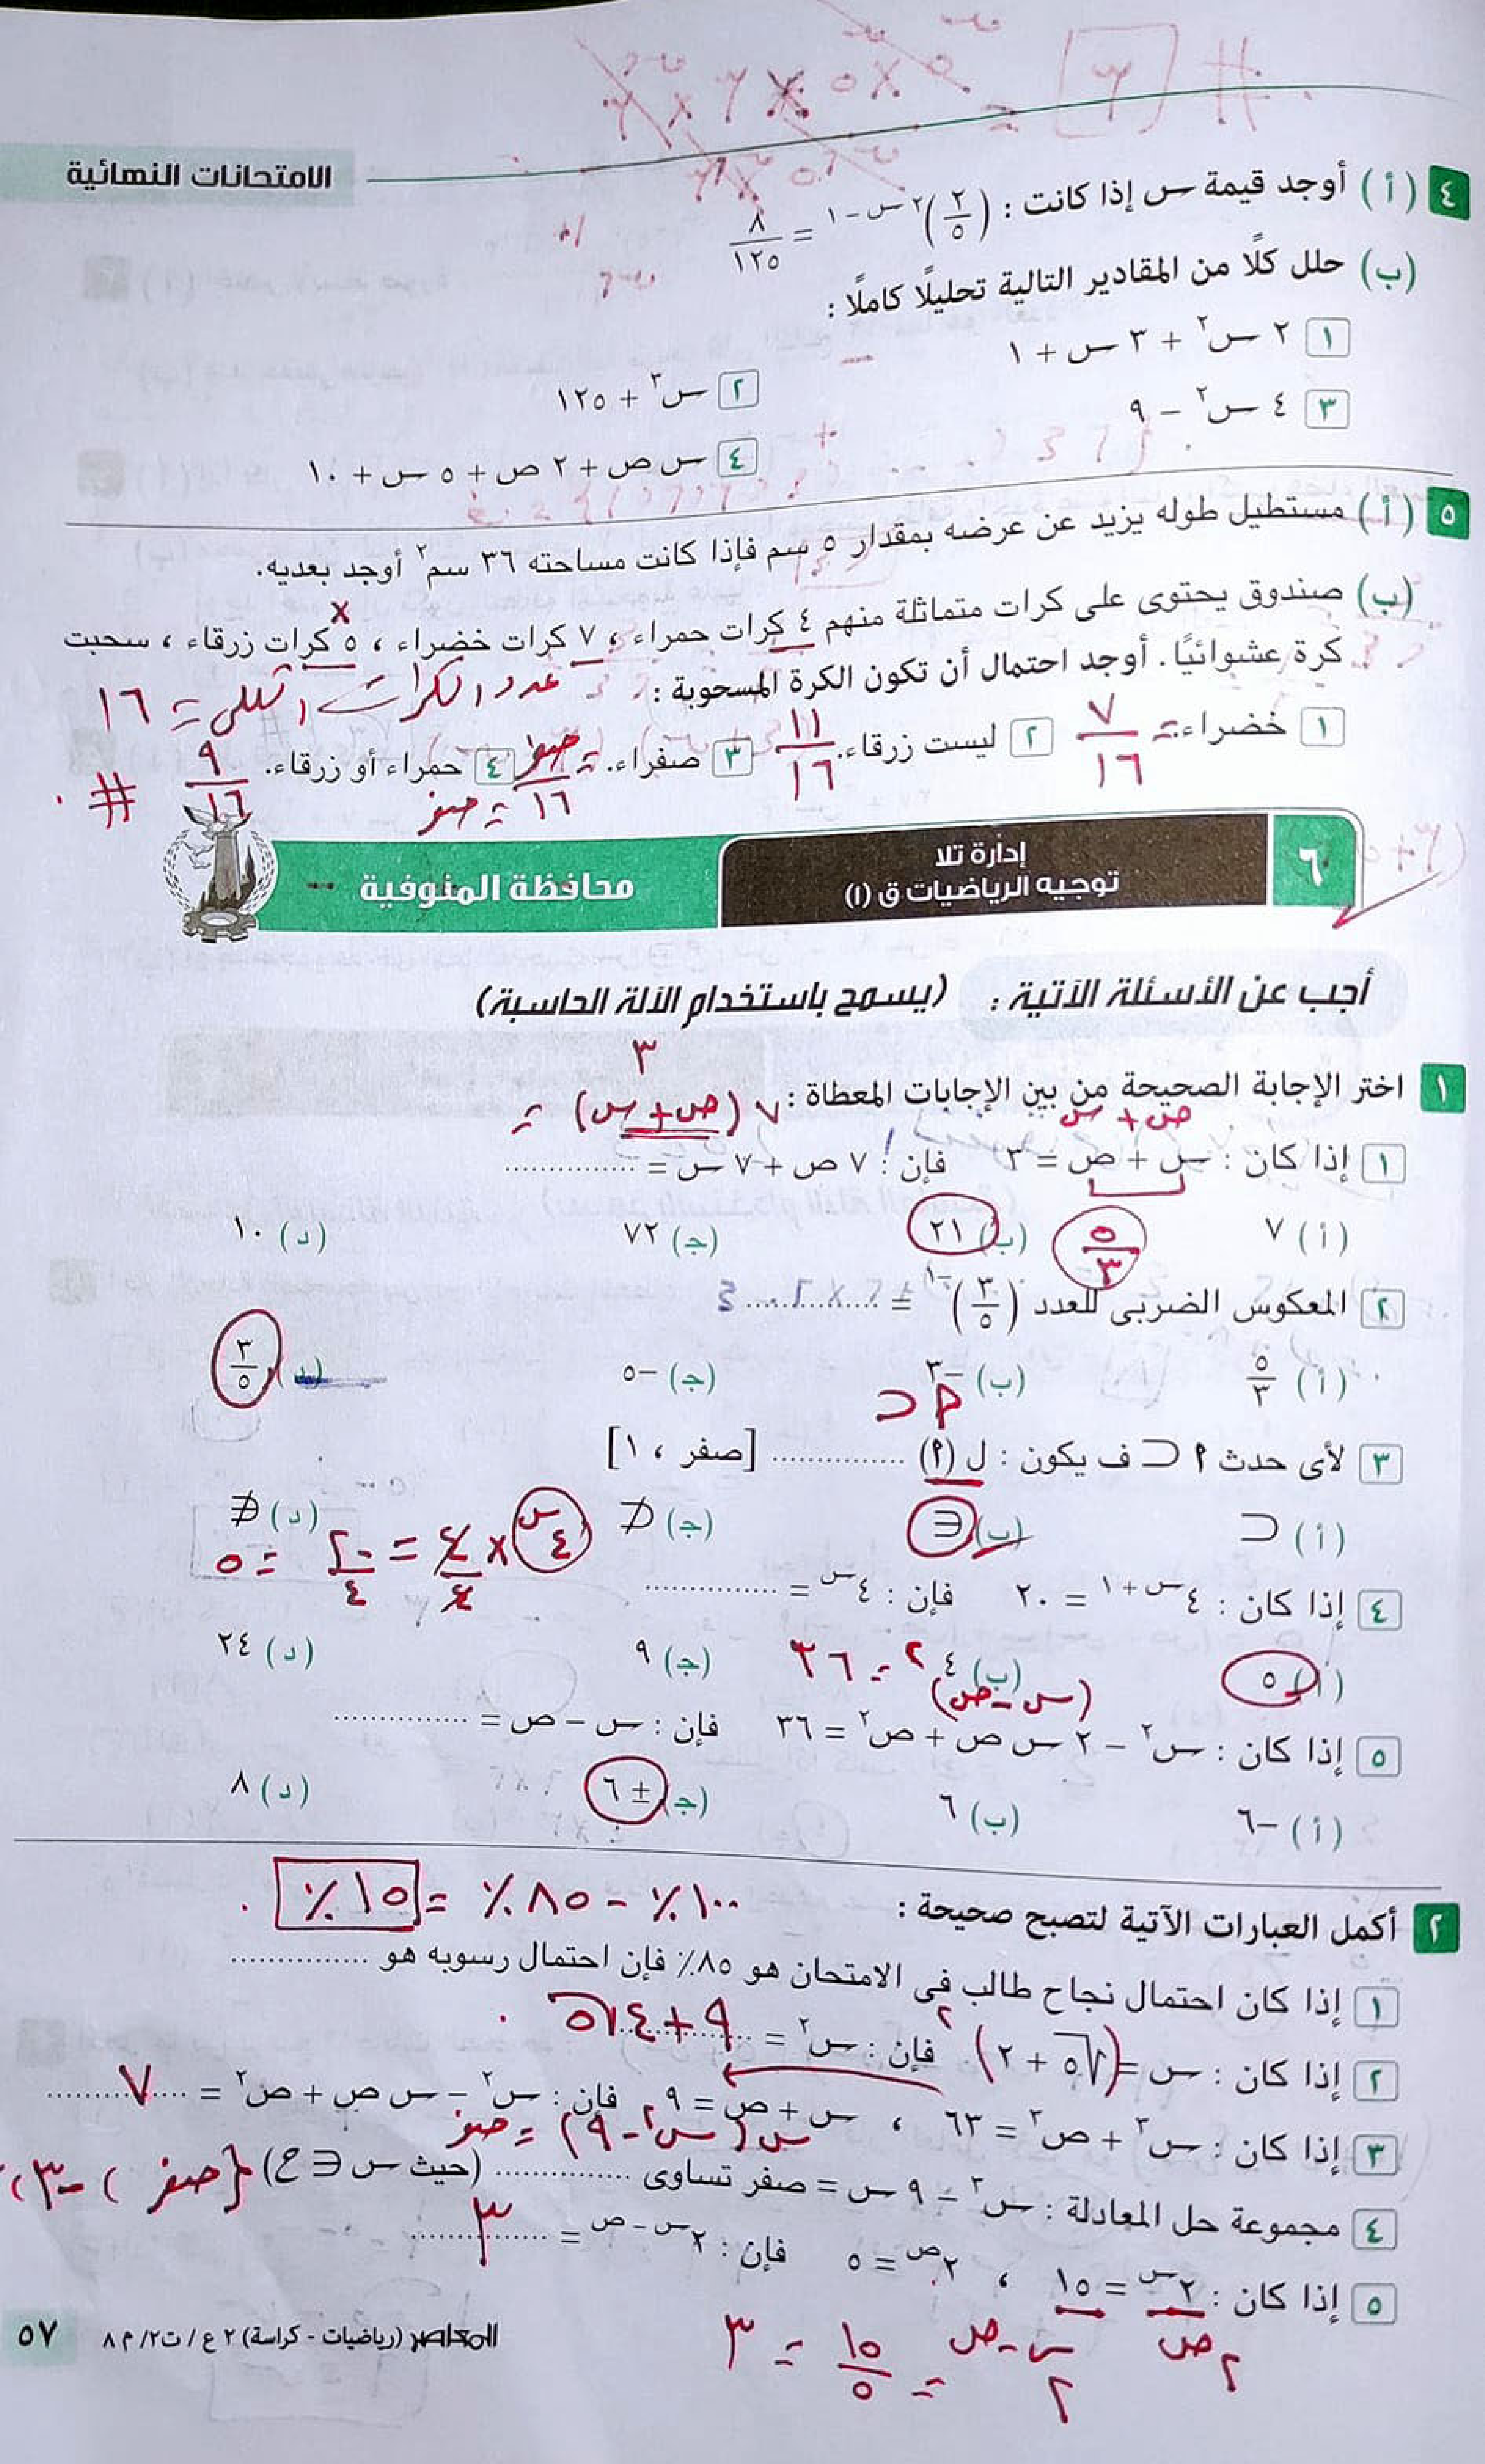 الامتحانات النهائية
٤ (أ) أوجد قيمة س إذا كانت : (٢/٥)^٢س - ١ = ٨/١٢٥
(ب) حلل كلًا من المقادير التالية تحليلًا كاملًا :
١ ٢ س² + ٣ س + ١
٢ س³ + ١٢٥
٣ ٤ س² - ٩
٤ س ص + ٢ ص + ٥ س + ١٠
٥ (أ) مستطيل طوله يزيد عن عرضه بمقدار ٥ سم فإذا كانت مساحته ٣٦ سم² أوجد بعديه.
(ب) صندوق يحتوى على كرات متماثلة منهم ٤ كرات حمراء ، ٧ كرات خضراء ، ٥ كرات زرقاء ، سحبت
كرة عشوائيًا. أوجد احتمال أن تكون الكرة المسحوبة :
عدد الكرات الكلى = ١٦
١ خضراء. = ٧/١٦ ٢ ليست زرقاء. ١١/١٦ ٣ صفراء. = صفر/١٦ = صفر ٤ حمراء أو زرقاء. ٩/١٦ #
٦ إدارة تلا
توجيه الرياضيات ق (١)
محافظة المنوفية
أجب عن الأسئلة الآتية : (يسمح باستخدام الآلة الحاسبة)
١ اختر الإجابة الصحيحة من بين الإجابات المعطاة :
٧ (ص + س) =
٣
ص + س
١ إذا كان : س + ص = ٣ فإن : ٧ ص + ٧ س = ..............
(أ) ٧ (ب) ٢١ (ج) ٧٢ (د) ١٠
٥/٣
٢ المعكوس الضربى للعدد (٣/٥)^-١ = ..............
(أ) ٥/٣ (ب) -٣ (ج) -٥ (د) ٣/٥
٣ لأى حدث ٩ ⊂ ف يكون : ل (٩) .............. [صفر ، ١]
(أ) ⊂ (ب) ∈ (ج) ⊄ (د) ∉
٤^س × ٤/٤ = ٢٠/٤ = ٥
٤ إذا كان : ٤^س + ١ = ٢٠ فإن : ٤^س = ..............
(أ) ٥ (ب) ٤ (ج) ٩ (د) ٢٤
(س - ص)² = ٣٦
٥ إذا كان : س² - ٢ س ص + ص² = ٣٦ فإن : س - ص = ..............
(أ) -٦ (ب) ٦ (ج) ± ٦ (د) ٨
٢ أكمل العبارات الآتية لتصبح صحيحة :
١٠٠٪ - ٨٥٪ = ١٥٪
١ إذا كان احتمال نجاح طالب فى الامتحان هو ٨٥٪ فإن احتمال رسوبه هو ..............
٢ إذا كان : س = (√٥ + ٢)² فإن : س² = ٩ + ٤√٥
٣ إذا كان : س³ + ص³ = ٦٣ ، س + ص = ٩ فإن : س² - س ص + ص² = ٧
س (س² - ٩) = صفر
٤ مجموعة حل المعادلة : س³ - ٩ س = صفر تساوى .............. (حيث س ∈ ح) {صفر ، -٣ ،
٥ إذا كان : ٢^س = ١٥ ، ٢^ص = ٥ فإن : ٢^س - ص = ٣
٢^ص ٢^س-ص = ١٥/٥ = ٣
المعاصر (رياضيات - كراسة) ٢ ع / ت٢/ م ٨ ٥٧